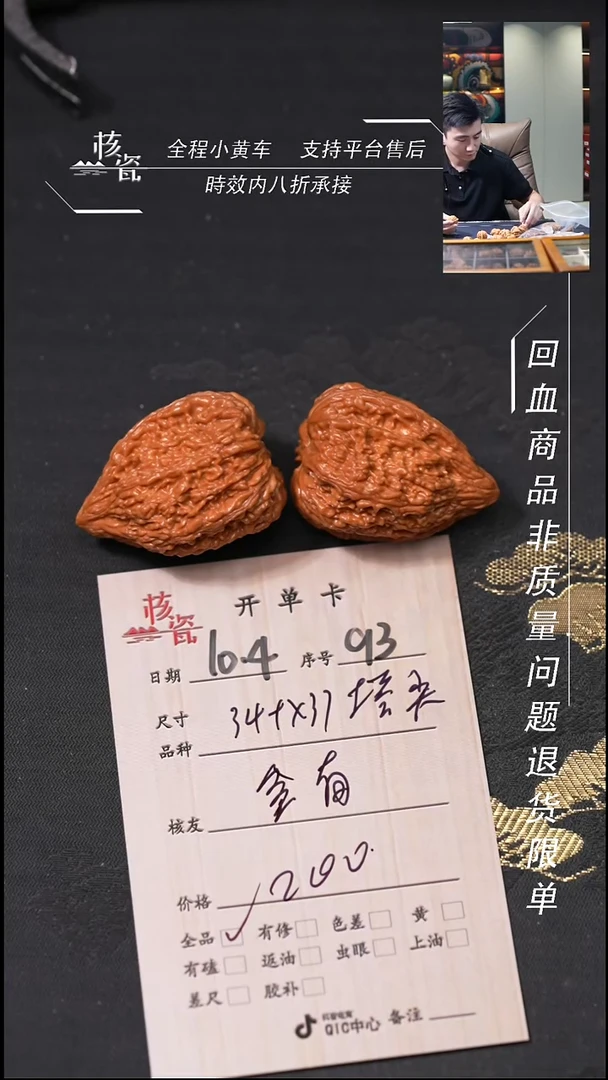 核瓷
全程小黄车 支持平台售后
時效内八折承接
回血商品非质量问题退货限单
核瓷
开单卡
日期 10.4 序号 93
尺寸
品种 34+X37 塔尖
核友
价格 200.
全品 ✓ 有修 色差 黄
有磕 返油 虫眼 上油
差尺 胶补
抖音电商
QIC中心 备注